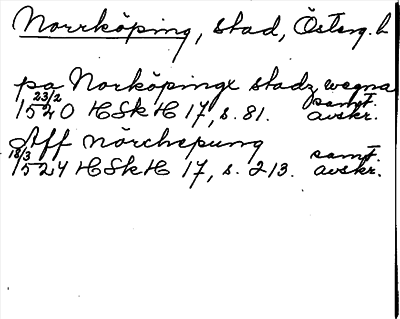 Norrköping, stad, Österg. L
pa Norköpingx stadz wegna
23/2 samt.
1520 HSkH 17, s. 81. avskr.
Aff nörchepung
18/3 samt.
1524 HSkH 17, s. 213. avskr.